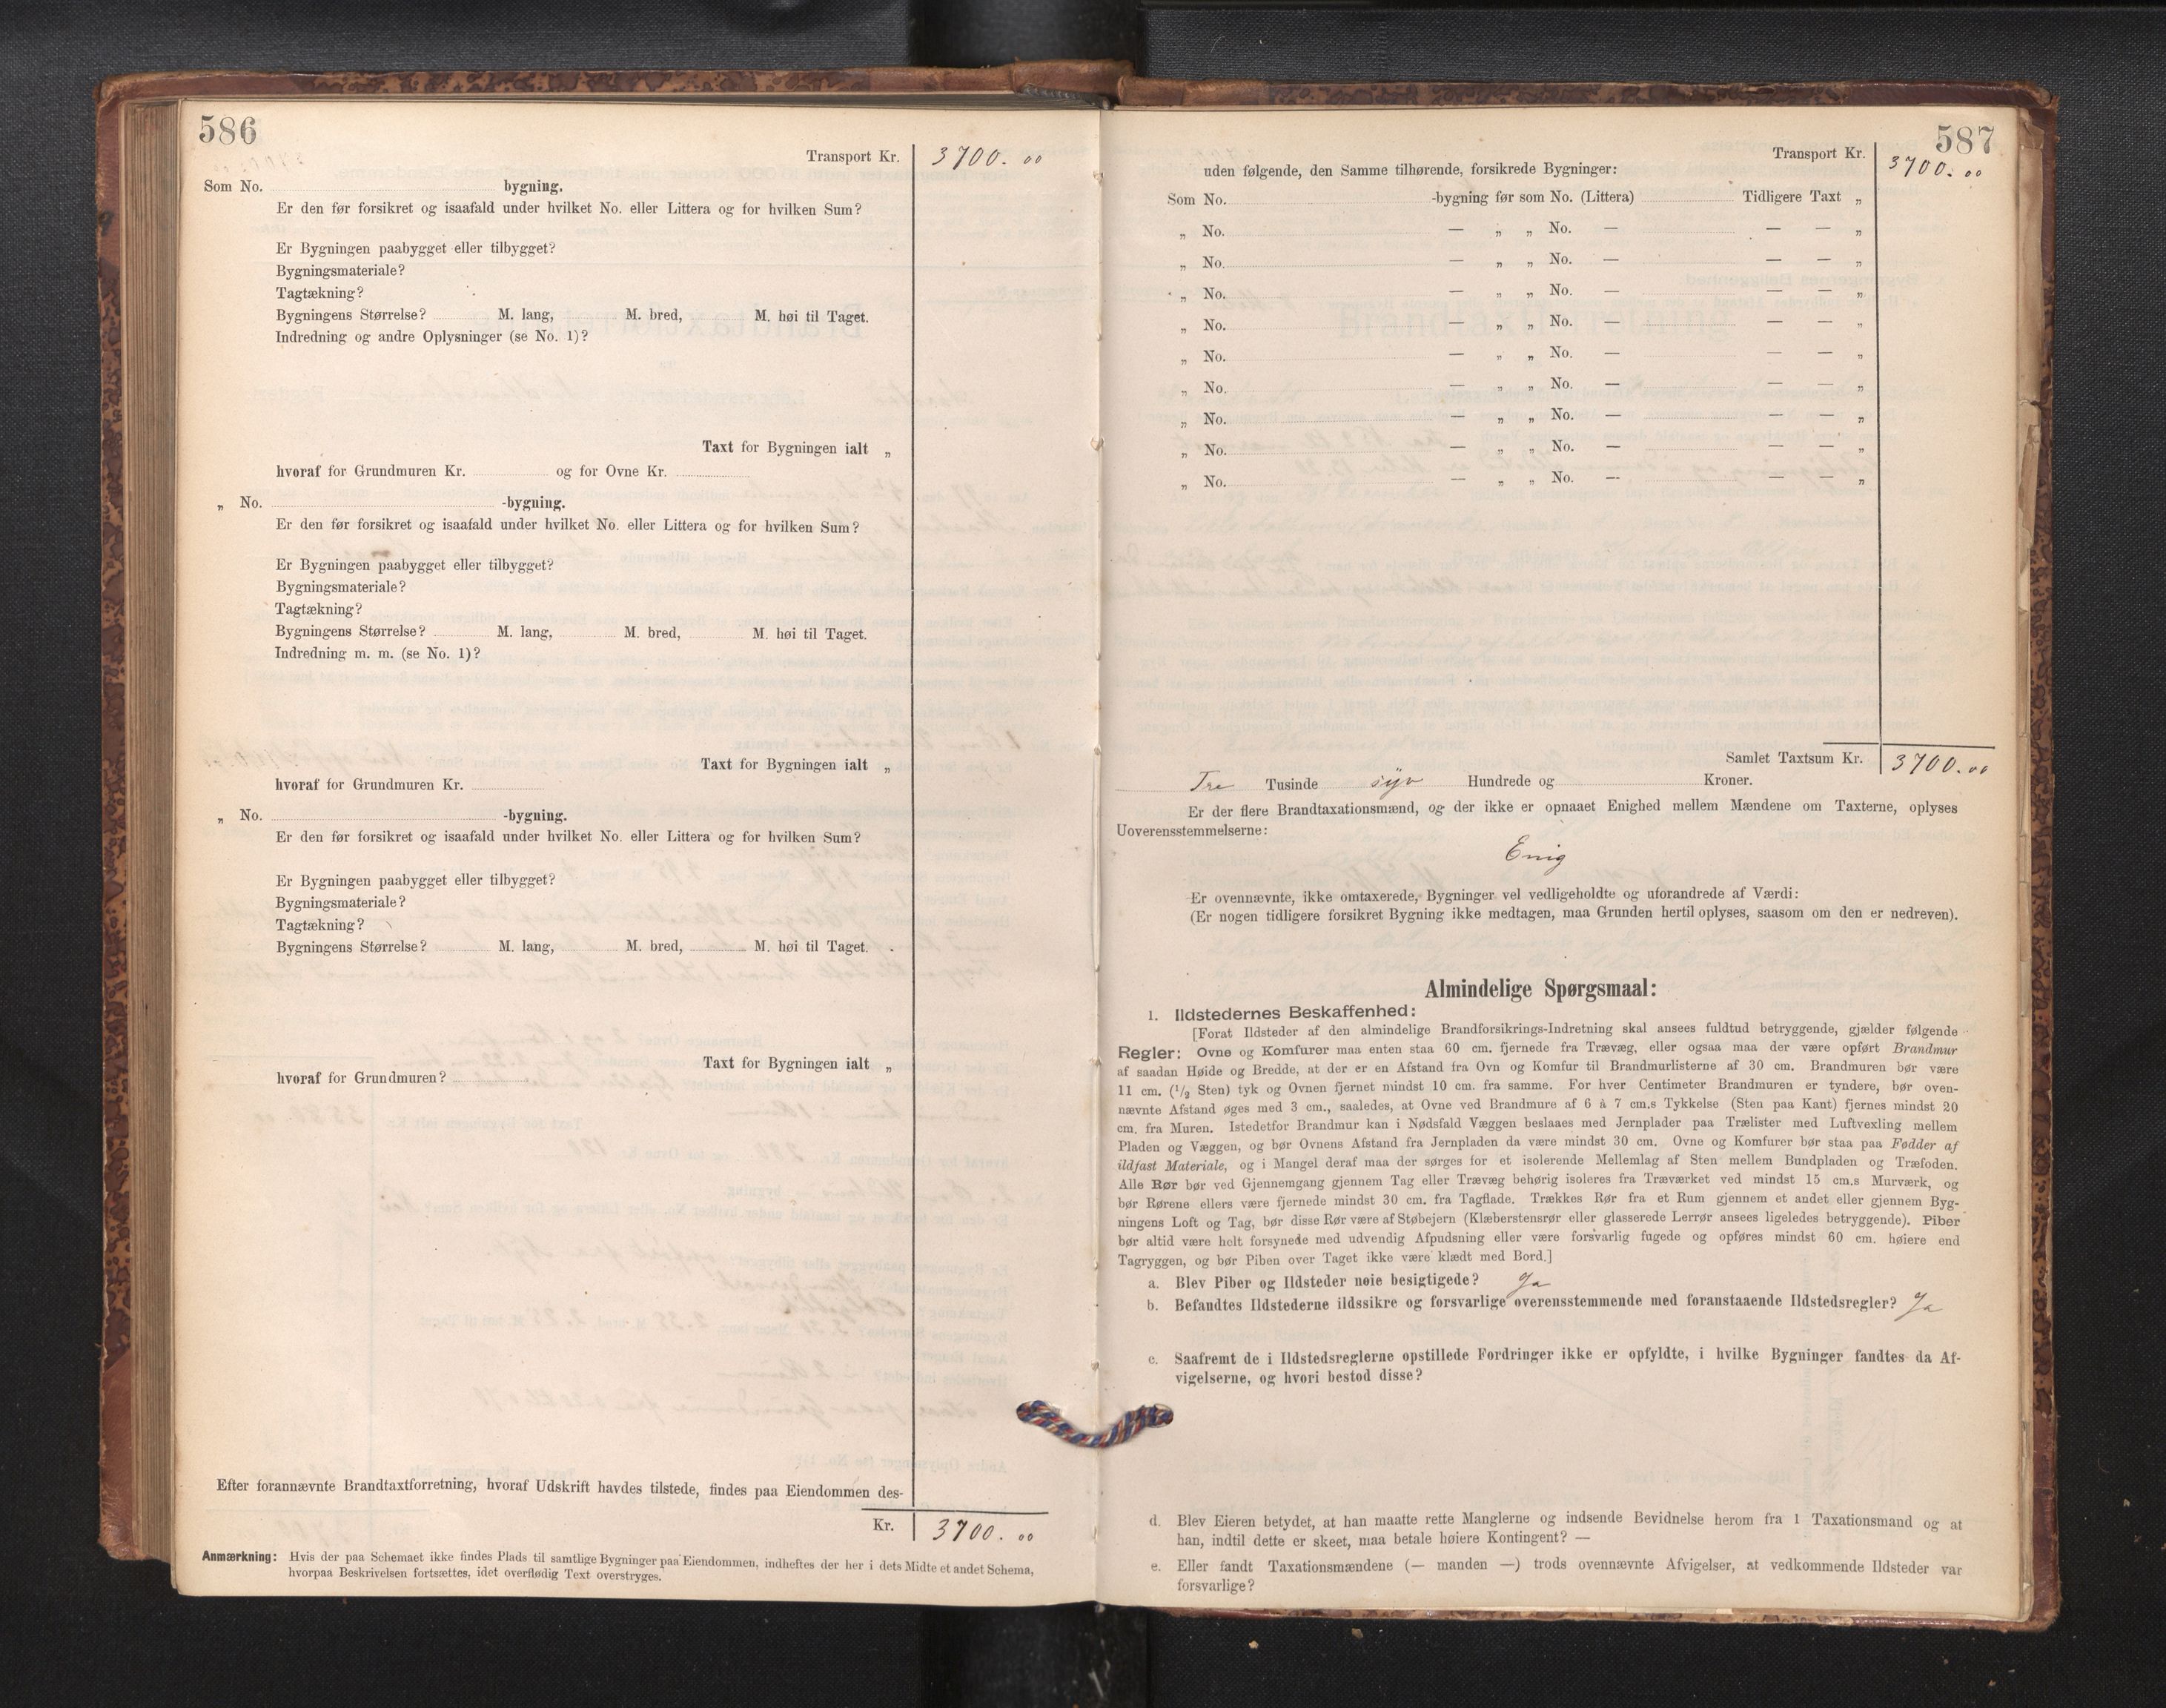 586
Transport Kr. 3700. 00
Som No. bygning.
Er den før forsikret og isaafald under hvilket No. eller Littera og for hvilken Sum?
Er Bygningen paabygget eller tilbygget?
Bygningsmateriale?
Tagtækning?
Bygningens Størrelse? M. lang, M. bred, M. høi til Taget.
Indredning og andre Oplysninger (se No. 1)?
Taxt for Bygningen ialt „
hvoraf for Grundmuren Kr. og for Ovne Kr.
„ No. -bygning.
Er den før forsikret og isaafald under hvilket No. eller Littera og for hvilken Sum?
Er Bygningen paabygget eller tilbygget?
Bygningsmateriale?
Tagtækning?
Bygningens Størrelse? M. lang, M. bred, M. høi til Taget.
Indredning m. m. (se No. 1)?
Taxt for Bygningen ialt „
hvoraf for Grundmuren Kr.
„ No. -bygning.
Er den før forsikret og isaafald under hvilket No. eller Littera og for hvilken Sum?
Er Bygningen paabygget eller tilbygget?
Bygningsmateriale?
Tagtækning?
Bygningens Størrelse? M. lang, M. bred, M. høi til Taget.
Taxt for Bygningen ialt „
hvoraf for Grundmuren?
Efter forannævnte Brandtaxtforretning, hvoraf Udskrift havdes tilstede, findes paa Eiendommen des-
Kr. 3700. 00
Anmærkning: Hvis der paa Schemaet ikke findes Plads til samtlige Bygninger paa Eiendommen, indheftes der her i dets Midte et andet Schema,
hvorpaa Beskrivelsen fortsættes, idet overflødig Text overstryges.
587
Transport Kr. 3700. 00
uden følgende, den Samme tilhørende, forsikrede Bygninger:
Som No. -bygning før som No. (Littera) Tidligere Taxt „
„ No. — „ „ No. — — — „
„ No. — „ „ No. — — — „
„ No. — „ „ No. — — — „
„ No. — „ „ No. — — — „
„ No. — „ „ No. — — — „
„ No. — „ „ No. — — — „
„ No. — „ „ No. — — — „
„ No. — „ „ No. — — — „
„ No. — „ „ No. — — — „
Samlet Taxtsum Kr. 3700. 00
Tre Tusinde syv Hundrede og Kroner.
Er der flere Brandtaxationsmænd, og der ikke er opnaaet Enighed mellem Mændene om Taxterne, oplyses
Uoverensstemmelserne:
Enig
Er ovennævnte, ikke omtaxerede, Bygninger vel vedligeholdte og uforandrede af Værdi:
(Er nogen tidligere forsikret Bygning ikke medtagen, maa Grunden hertil oplyses, saasom om den er nedreven).
Almindelige Spørgsmaal:
1. Ildstedernes Beskaffenhed:
[Forat Ildsteder af den almindelige Brandforsikrings-Indretning skal ansees fuldtud betryggende, gjælder følgende
Regler: Ovne og Komfurer maa enten staa 60 cm. fjernede fra Trævæg, eller ogsaa maa der være opført Brandmur
af saadan Høide og Bredde, at der er en Afstand fra Ovn og Komfur til Brandmurlisterne af 30 cm. Brandmuren bør være
11 cm. (1/2 Sten) tyk og Ovnen fjernet mindst 10 cm. fra samme. For hver Centimeter Brandmuren er tyndere, bør oven-
nævnte Afstand øges med 3 cm., saaledes, at Ovne ved Brandmure af 6 à 7 cm.s Tykkelse (Sten paa Kant) fjernes mindst 20
cm. fra Muren. Istedetfor Brandmur kan i Nødsfald Væggen beslaaes med Jernplader paa Trælister med Luftvexling mellem
Pladen og Væggen, og bør Ovnens Afstand fra Jernpladen da være mindst 30 cm. Ovne og Komfurer bør staa paa Fødder af
ildfast Materiale, og i Mangel deraf maa der sørges for et isolerende Mellemlag af Sten mellem Bundpladen og Træfoden.
Alle Rør bør ved Gjennemgang gjennem Tag eller Trævæg behørig isoleres fra Træværket ved mindst 15 cm.s Murværk, og
bør Rørene ellers være fjernede mindst 30 cm. fra Tagflade. Trækkes Rør fra et Rum gjennem et andet eller gjennem Byg-
ningens Loft og Tag, bør disse Rør være af Støbejern (Klæberstensrør eller glasserede Lerrør ansees ligeledes betryggende). Piber
bør altid være helt forsynede med udvendig Afpudsning eller være forsvarlig fugede og opføres mindst 60 cm. høiere end
Tagryggen, og bør Piben over Taget ikke være klædt med Bord.]
a. Blev Piber og Ildsteder nøie besigtigede? Ja
b. Befandtes Ildstederne ildssikre og forsvarlige overensstemmende med foranstaaende Ildstedsregler? Ja
c. Saafremt de i Ildstedsreglerne opstillede Fordringer ikke er opfyldte, i hvilke Bygninger fandtes da Af-
vigelserne, og hvori bestod disse?
d. Blev Eieren betydet, at han maatte rette Manglerne og indsende Bevidnelse herom fra 1 Taxationsmand og at
han, indtil dette er skeet, maa betale høiere Kontingent? —
e. Eller fandt Taxationsmændene (— manden —) trods ovennævnte Afvigelser, at vedkommende Ildsteder var
forsvarlige?